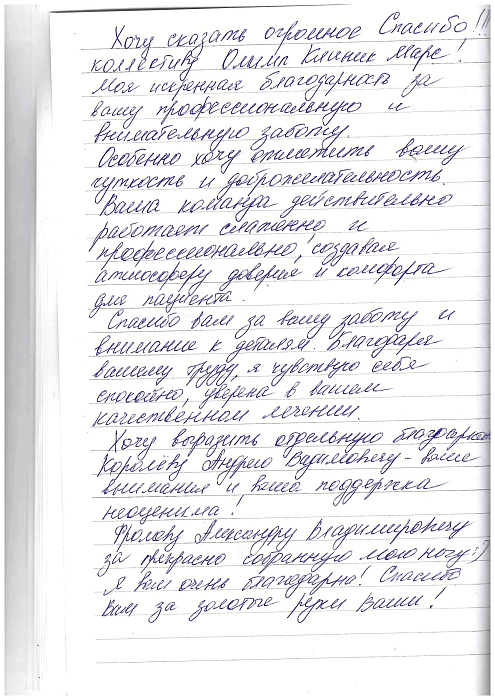 Хочу сказать огромное Спасибо!!!
коллективу Олимп Клиник Марс!
Моя искренная благодарность за
вашу профессиональную и
внимательную заботу.
Особенно хочу отметить вашу
чуткость и доброжелательность.
Ваша команда действительно
работает слаженно и
профессионально, создавая
атмосферу доверия и комфорта
для пациента.
Спасибо вам за вашу заботу и
внимание к деталям. Благодаря
вашему труду, я чувствую себя
спокойно, уверена в вашем
качественном лечении.
Хочу выразить отдельную благодарность
Королёву Андрею Вадимовичу - ваше
внимания и ваша поддержка
неоценима!
Фролову Александру Владимировичу
за прекрасно собранную мою ногу :)
Я вам очень благодарна! Спасибо
Вам за золотые руки Ваши!